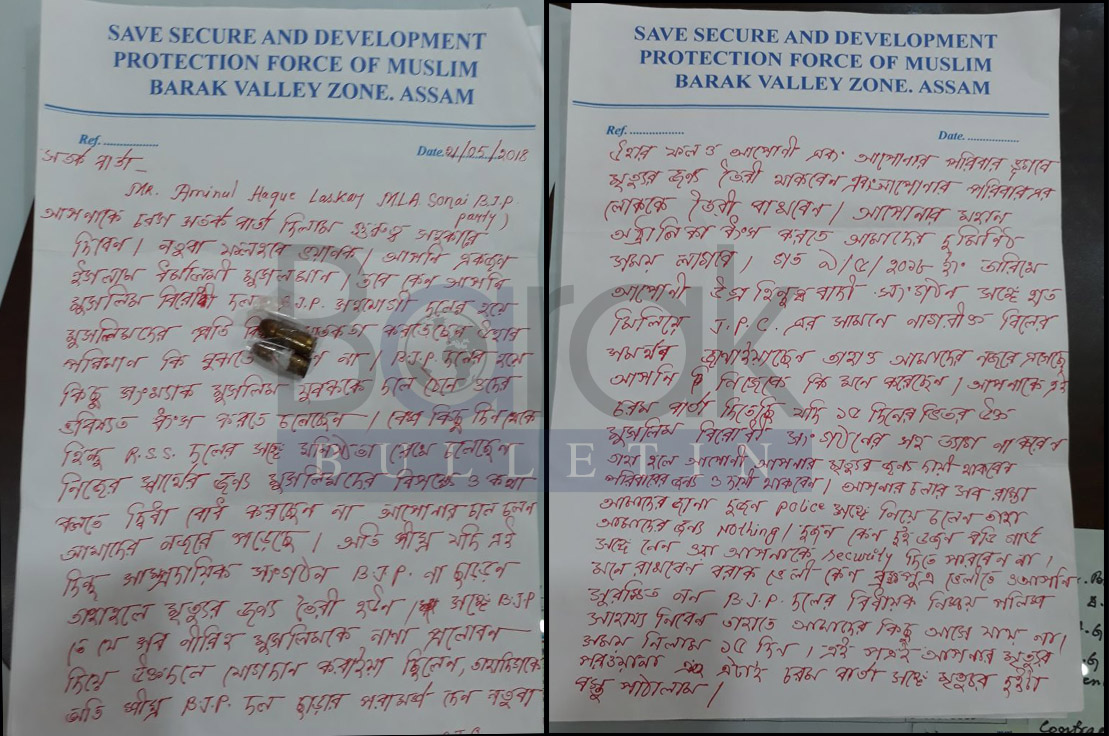 SAVE SECURE AND DEVELOPMENT
PROTECTION FORCE OF MUSLIM
BARAK VALLEY ZONE. ASSAM
Ref. ..................
Date. 21/05/2018
সতর্ক বার্তা _
Mr. Aminul Haque Laskar MLA Sonai B.J.P.
party)
আপনাকে চরম সতর্ক বার্তা দিলাম গুরুত্ব সহকারে
দিবেন। নতুবা ভয়ানক। আপনি একজন
ইসলাম মুসলমান। তবে কেন আপনি
মুসলিম বিরোধী দল B.J.P. দলের হয়ে
মুসলিমদের প্রতি করতেছেন ইহার
পরিমান কি বুঝতে না। B.J.P. দলের হয়ে
কিছু সংখ্যক মুসলিম যুবককে দলে টেনে ওদের
ভবিষ্যত ধ্বংস করতে চলেছেন। বেশ কিছু দিন থেকে
হিন্দু R.S.S. দলের সঙ্গে চলেছেন
নিজের স্বার্থের জন্য মুসলিমদের বিপক্ষে ও কথা
বলতে দ্বিধা বোধ করছেন না আপোনার চাল চলন
আমাদের নজরে পড়েছে। অতি শীঘ্র যদি এই
হিন্দু সাম্প্রদায়িক সংগঠন B.J.P. না ছাড়েন
তাহাহলে মৃত্যুর জন্য তৈরী হউন। সঙ্গে B.J.P
তে যে সব নীরিহ মুসলিমকে নানা প্রলোবন
দিয়ে উক্তদলে যোগদান করাইয়া ছিলেন, তাহাদিগকে
অতি শীঘ্র B.J.P. দল ছাড়ার পরামর্শ দেন নতুবা
SAVE SECURE AND DEVELOPMENT
PROTECTION FORCE OF MUSLIM
BARAK VALLEY ZONE. ASSAM
Ref. ..................
Date. ..................
ইহার ফল ও আপোনী এবং আপোনার পরিবার
মৃত্যুর জন্য তৈরী থাকবেন এবং আপোনার পরিবার এর
লোককে তৈরী রাখবেন। আপোনার মহান
অট্টালিকা ধ্বংস করতে আমাদের দু মিনিট
সময় লাগবে। গত ৯/৫/২০১৮ ইং তারিখে
আপোনী উগ্র হিন্দুত্ব বাদী সংগঠন সঙ্গে হাত
মিলিয়ে J.P.C. এর সামনে নাগরীক্ত বিলের
সমর্থন জানাইয়াছেন তাহাও আমাদের নজরে পড়েছে
আপনি নিজেকে কি মনে করেছেন। আপনাকে এই
চরম বার্তা দিতেছি যদি ১৫ দিনের ভিতর উক্ত
মুসলিম বিরোধী সংগঠনের সঙ্গ ত্যাগ না করেন
তাহা হলে আপোনী আপনার মৃত্যুর জন্য দায়ী থাকবেন
পরিবারের জন্য ও দায়ী থাকবেন। আপনার চলার সব রাস্তা
আমাদের জানা দুজন police সঙ্গে নিয়ে চলেন তাহা
আমাদের জন্য Nothing। দুজন কেন দুই ডজন বডি গার্ড
সঙ্গে নেন ওরা আপনাকে security দিতে পারবেন না।
মনে রাখবেন বরাক ভেলী কেন ব্রহ্মপুত্র ভেলীতে ও আপনি
সুরক্ষিত নন B.J.P. দলের বিধায়ক নিশ্চয় পুলিশ
সাহায্য নিবেন তাহাতে আমাদের কিছু আসে যায় না।
সময় দিলাম ১৫ দিন। এই পত্রই আপনার মৃত্যুর
পরওয়ানা এটাই চরম বার্তা সঙ্গে মৃত্যুর দুইটা
বস্তু পাঠালাম।
Barak
BULLETIN